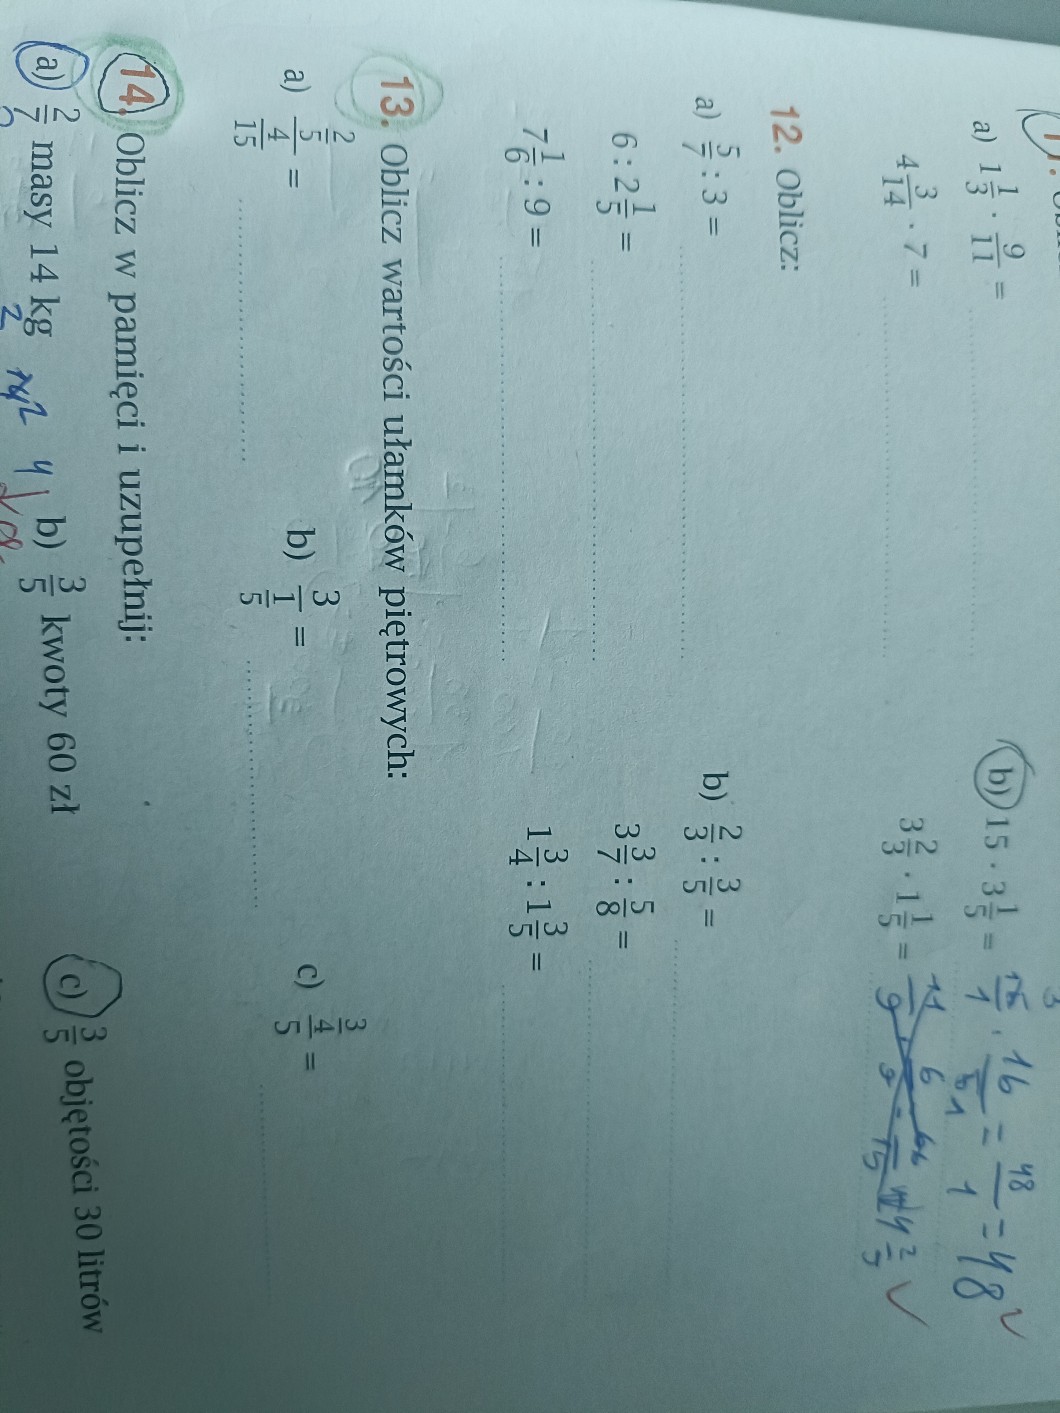 a) 1 1/3 · 9/11 =
b) 15 · 3 1/5 = 15/1 · 16/5 1 = 48/1 = 48
4 3/14 · 7 =
3 2/3 · 1 1/5 =
12. Oblicz:
a) 5/7 : 3 =
b) 2/3 : 3/5 =
6 : 2 1/5 =
3 3/7 : 5/8 =
7 1/6 : 9 =
1 3/4 : 1 3/5 =
13. Oblicz wartości ułamków piętrowych:
a) 2/5 / 4/15 =
b) 3 / 1/5 =
c) 3/4 / 5 =
14. Oblicz w pamięci i uzupełnij:
a) 2/7 masy 14 kg
b) 3/5 kwoty 60 zł
c) 3/5 objętości 30 litrów